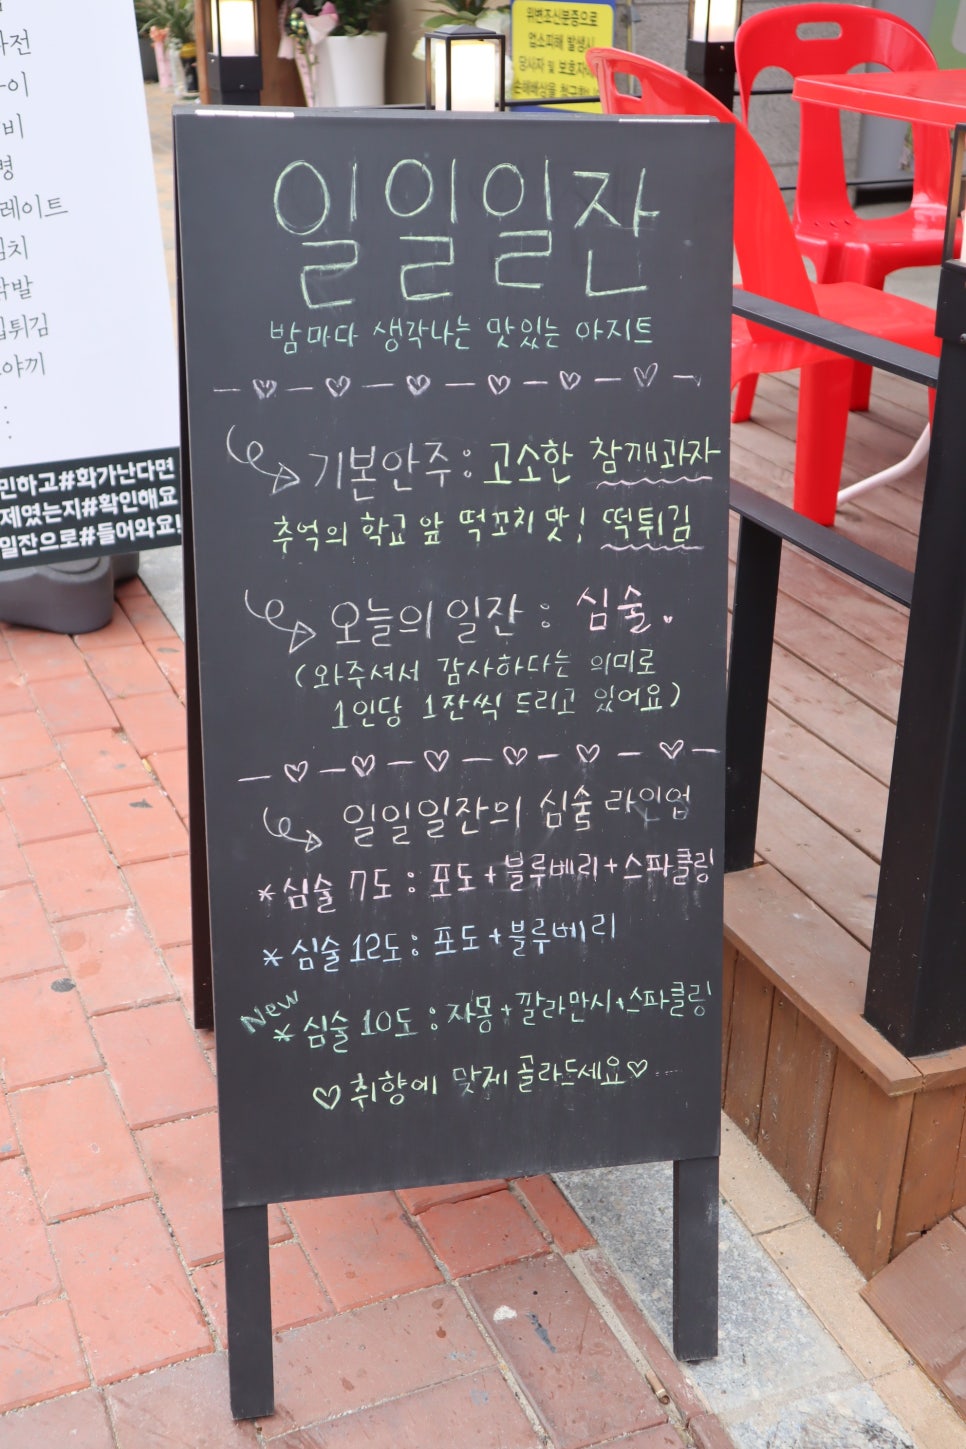 일일일잔
밤마다 생각나는 맛있는 아지트
기본안주 : 고소한 참깨과자
추억의 학교 앞 떡꼬치 맛! 떡튀김
오늘의 일잔 : 심술.
(와주셔서 감사하다는 의미로
1인당 1잔씩 드리고 있어요)
일일일잔의 심술 라인업
*심술 7도 : 포도+블루베리+스파클링
*심술 12도 : 포도+블루베리
New
*심술 10도 : 자몽+깔라만시+스파클링
♡취향에 맞게 골라드세요♡
위변조신분증으로
업소피해 발생시
당사자 및 보호자
레이트
튀김
야끼
민하고#화가난다면
제였는지#확인해요
일잔으로#들어와요!